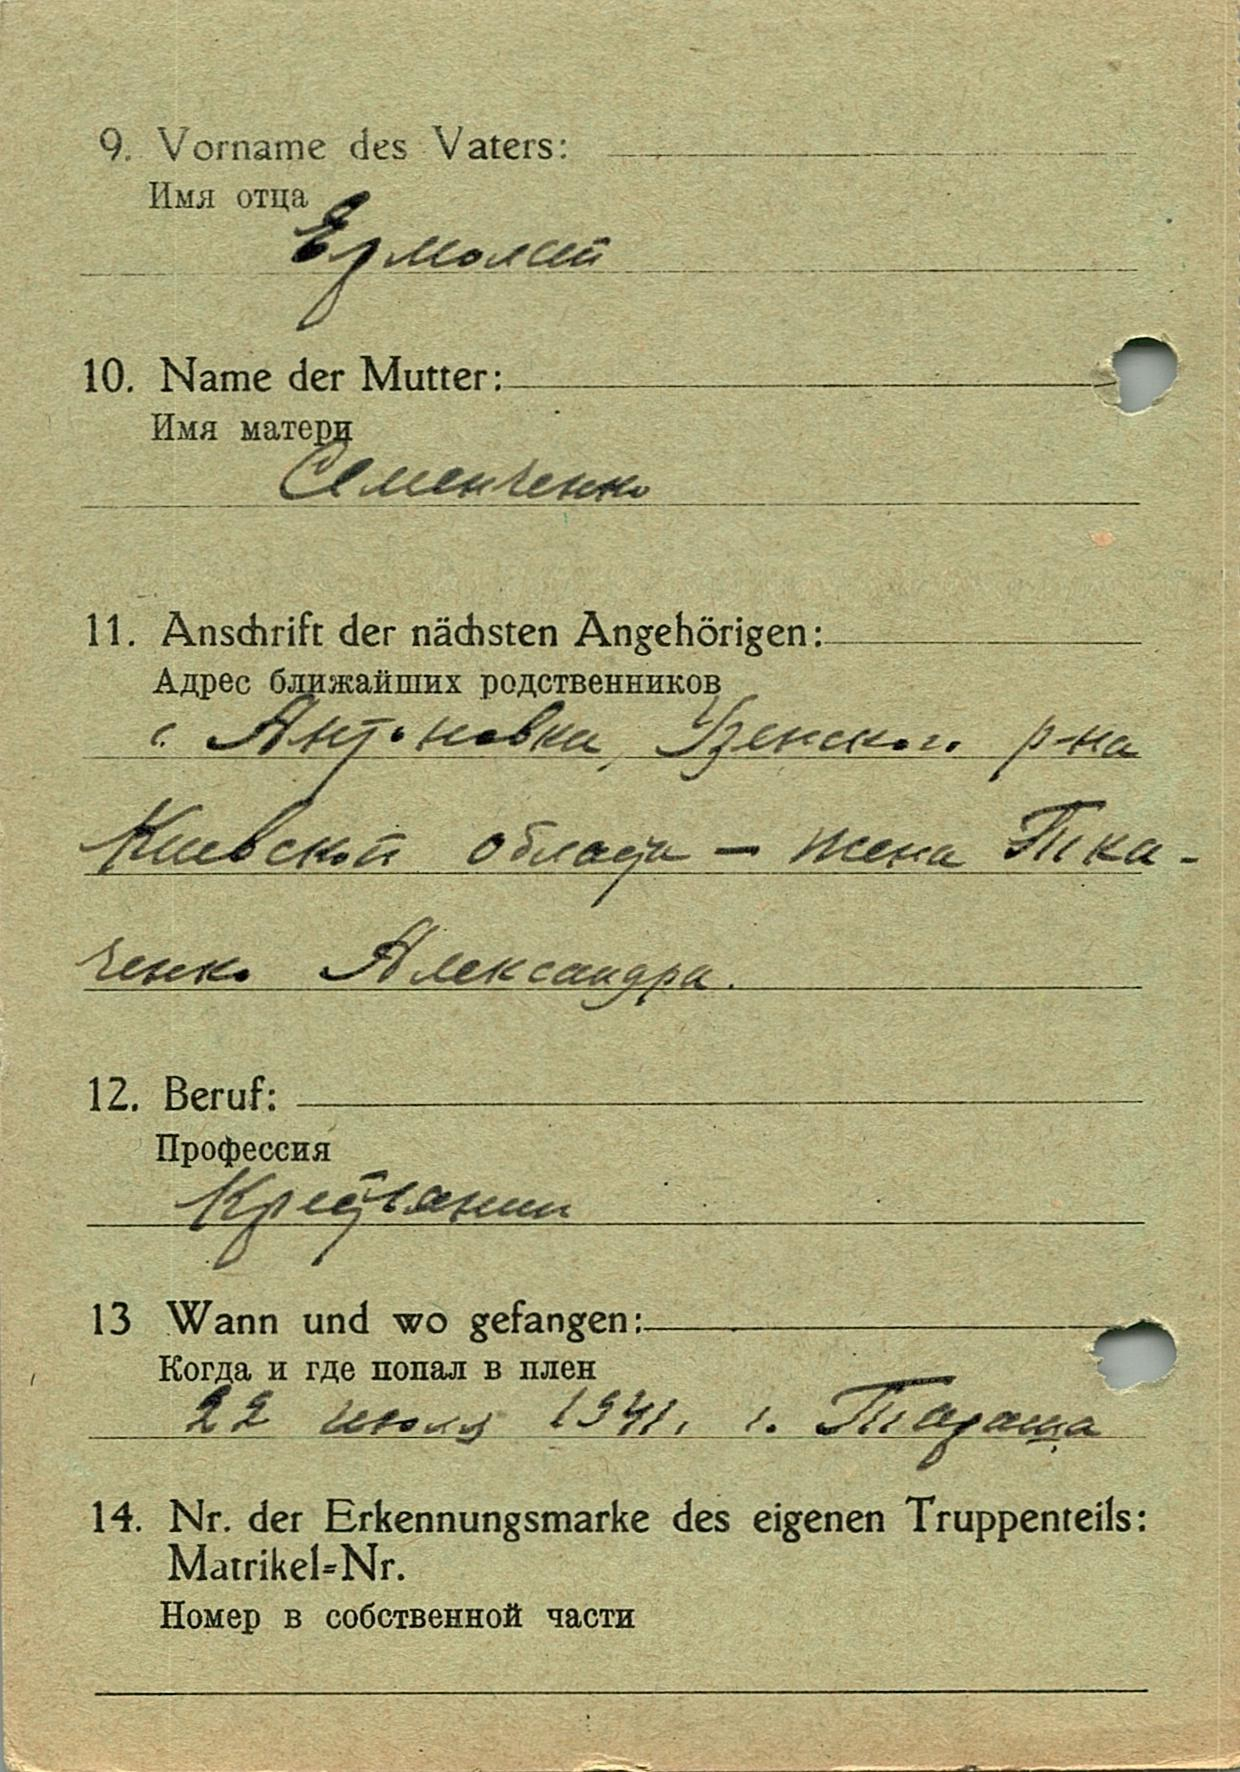 9. Vorname des Vaters:
Имя отца
Ермолай
10. Name der Mutter:
Имя матери
Семенченко
11. Anschrift der nächsten Angehörigen:
Адрес ближайших родственников
с. Антоновка, Узенского р-на
Киевской области - жена Тка-
ченко Александра.
12. Beruf:
Профессия
Крестьянин
13 Wann und wo gefangen:
Когда и где попал в плен
22 июля 1941, г. Тараща
14. Nr. der Erkennungsmarke des eigenen Truppenteils:
Matrikel=Nr.
Номер в собственной части